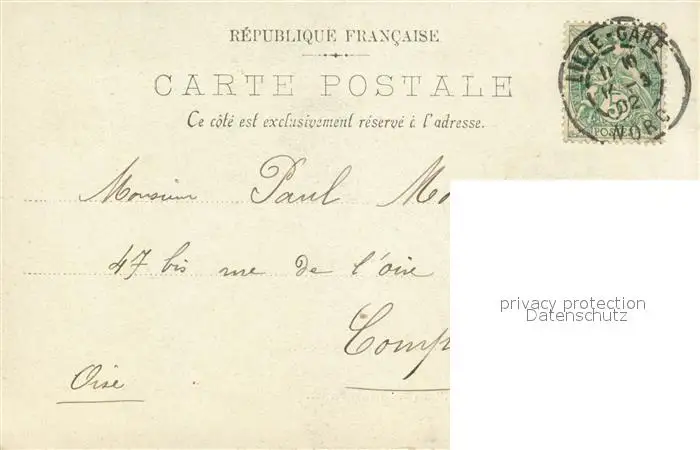 RÉPUBLIQUE FRANÇAISE
CARTE POSTALE
Ce côté est exclusivement réservé à l'adresse.
LILLE-GARE
02
NORD
5
POSTES
Monsieur Paul Mo
47 bis rue de l'oise
Comp
Oise
privacy protection
Datenschutz